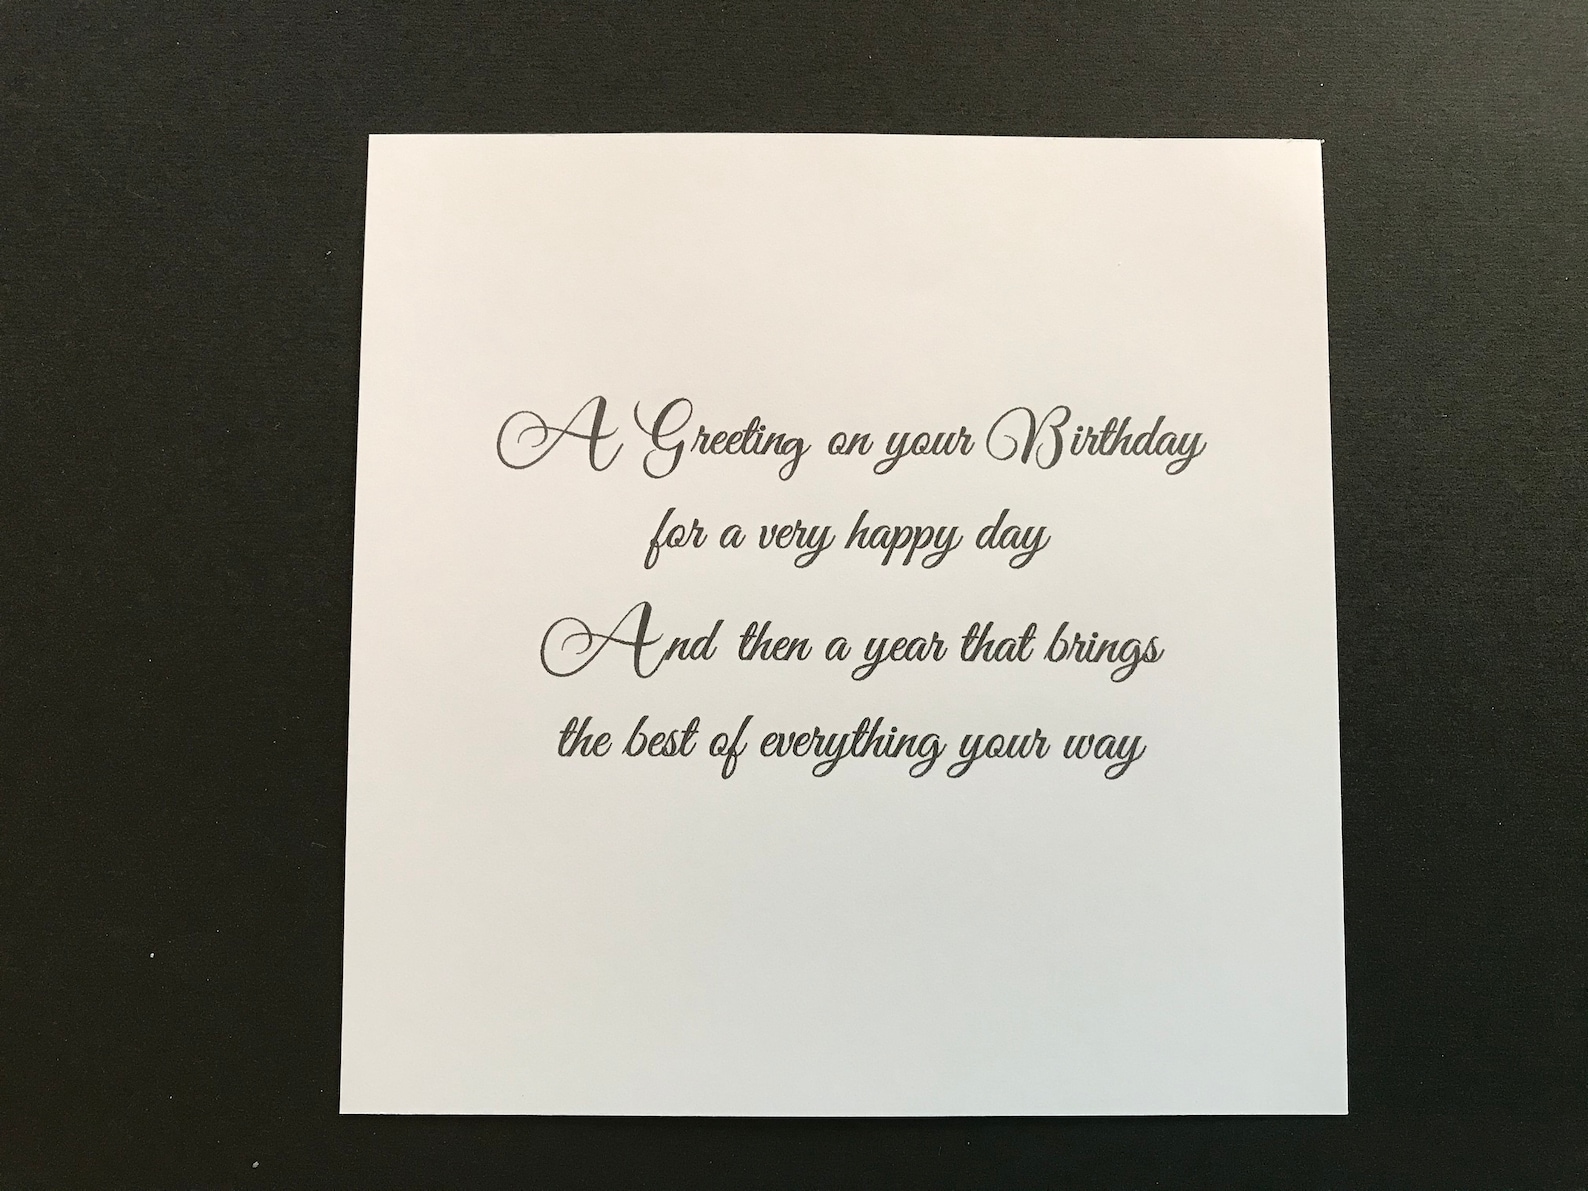 A Greeting on your Birthday
for a very happy day
And then a year that brings
the best of everything your way